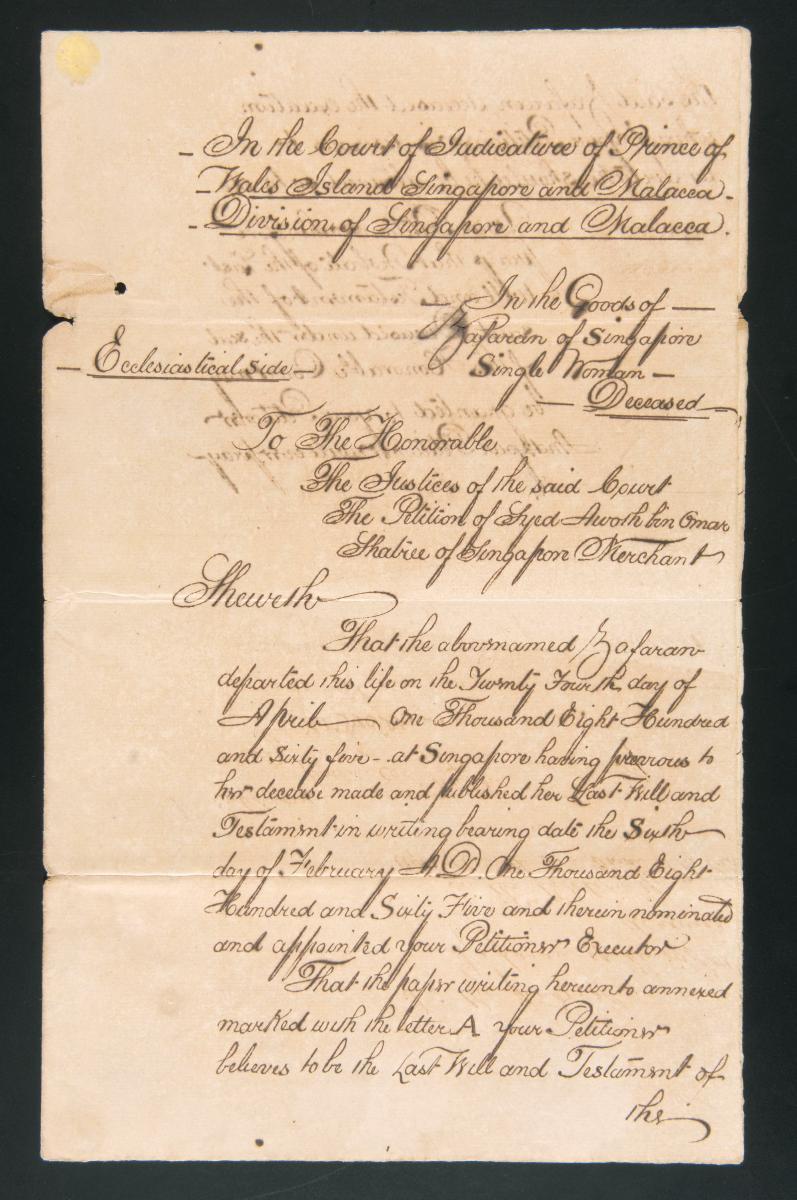 In the Court of Judicature of Prince of
Wales Island Singapore and Malacca.
Division of Singapore and Malacca.
In the Goods of
Zafaran of Singapore
Ecclesiastical side
Single Woman
Deceased
To The Honorable
The Justices of the said Court
The Petition of Syed Awoth bin Omar
Shatree of Singapore Merchant
Sheweth
That the abovenamed Zafaran
departed this life on the Twenty Fourth day of
April One Thousand Eight Hundred
and Sixty five - at Singapore having previous to
her decease made and published her Last Will and
Testament in writing bearing date the Sixth
day of February A.D. One Thousand Eight
Hundred and Sixty Five and therein nominated
and appointed your Petitioner Executor
That the paper writing hereunto annexed
marked with the letter A your Petitioner
believes to be the Last Will and Testament of
the